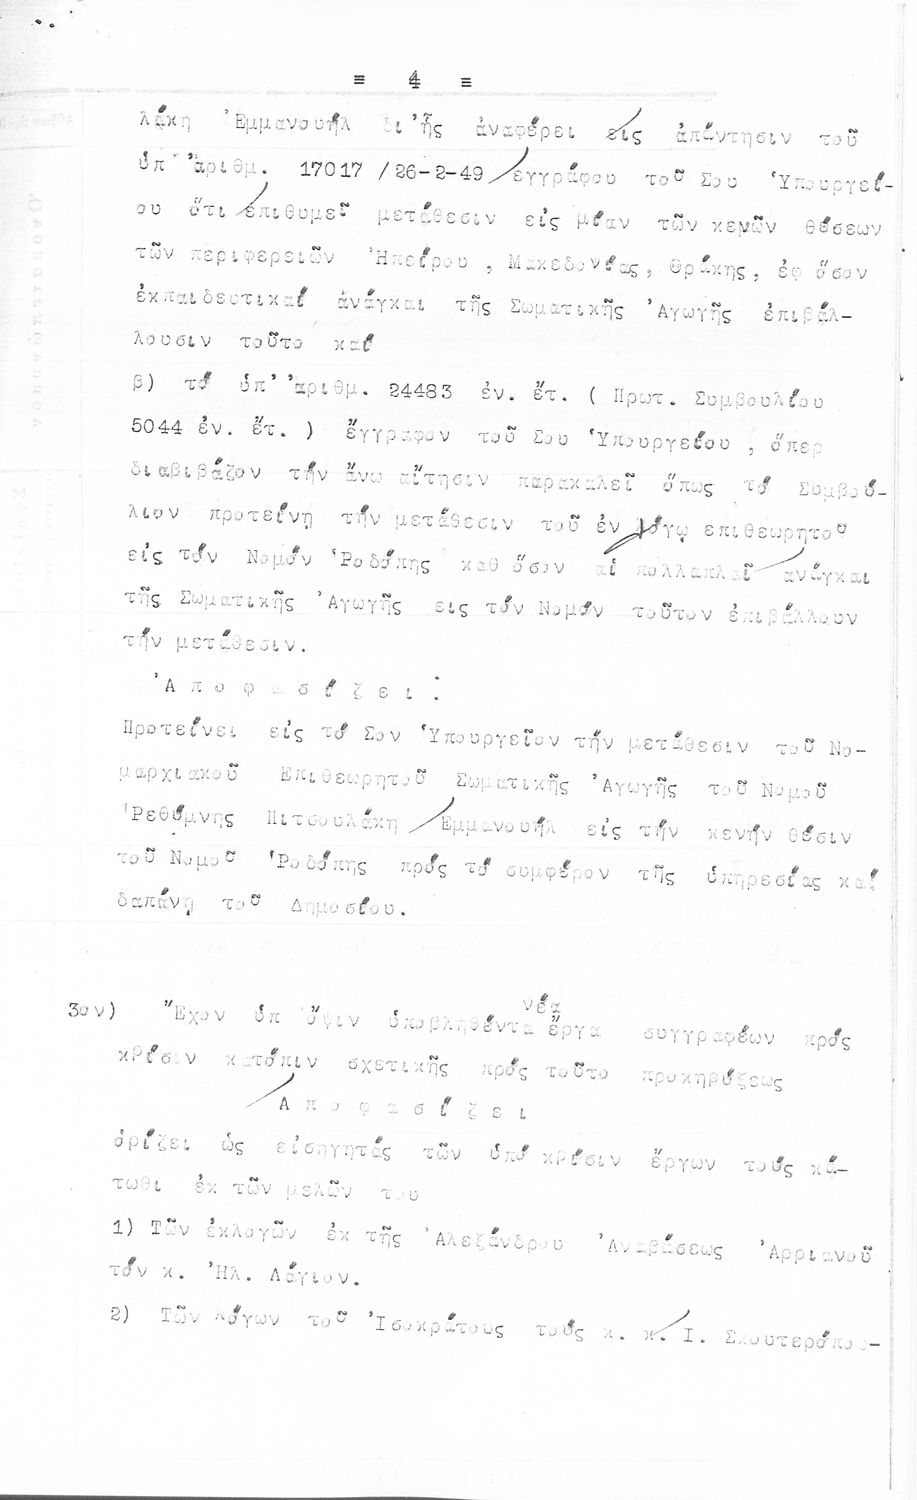 = 4 =
λάκη Ἐμμανουήλ δι' ἧς ἀναφέρει εἰς ἀπάντησιν τοῦ
ὑπ' ἀριθμ. 17017 /26-2-49 ἐγγράφου τοῦ Σου Ὑπουργεί-
ου ὅτι ἐπιθυμεῖ μετάθεσιν εἰς μίαν τῶν κενῶν θέσεων
τῶν περιφερειῶν Ἠπείρου , Μακεδονίας, Θράκης, ἐφ ὅσον
ἐκπαιδευτικαί ἀνάγκαι τῆς Σωματικῆς Ἀγωγῆς ἐπιβάλ-
λουσιν τοῦτο καί
β) τό ὑπ' ἀριθμ. 24483 ἐν. ἔτ. ( Πρωτ. Συμβουλίου
5044 ἐν. ἔτ. ) ἔγγραφον τοῦ Σου Ὑπουργείου , ὅπερ
διαβιβάζον τήν ἄνω αἴτησιν παρακαλεῖ ὅπως τό Συμβού-
λιον προτείνῃ τήν μετάθεσιν τοῦ ἐν λόγῳ ἐπιθεωρητοῦ
εἰς τόν Νομόν Ῥοδόπης καθ ὅσον αἱ πολλαπλαῖ ἀνάγκαι
τῆς Σωματικῆς Ἀγωγῆς εις τόν Νομόν τοῦτον ἐπιβάλλουν
τήν μετάθεσιν.
Ἀ π ο φ α σ ί ζ ε ι :
Προτείνει εἰς τό Σον Ὑπουργεῖον τήν μετάθεσιν τοῦ Νο-
μαρχιακοῦ Ἐπιθεωρητοῦ Σωματικῆς Ἀγωγῆς τοῦ Νομοῦ
Ῥεθύμνης Πιτσουλάκη Ἐμμανουήλ εἰς τήν κενήν θέσιν
τοῦ Νομοῦ Ῥοδόπης πρός τό συμφέρον τῆς ὑπηρεσίας καί
δαπάνῃ τοῦ Δημοσίου.
3ον) Ἔχον ὑπ ὄψιν ὑποβληθέντα νέα ἔργα συγγραφέων πρός
κρίσιν κατόπιν σχετικῆς πρός τοῦτο προκηρύξεως
Ἀ π ο φ α σ ί ζ ε ι
ὁρίζει ὡς εἰσηγητάς τῶν ὑπό κρίσιν ἔργων τούς κά-
τωθι ἐκ τῶν μελῶν του
1) Τῶν ἐκλογῶν ἐκ τῆς Ἀλεξάνδρου Ἀναβάσεως Ἀρριανοῦ
τόν κ. Ἠλ. Λάγιον.
2) Τῶν λόγων τοῦ Ἰσοκράτους τούς κ. κ. Ι. Σκουτερόπου-